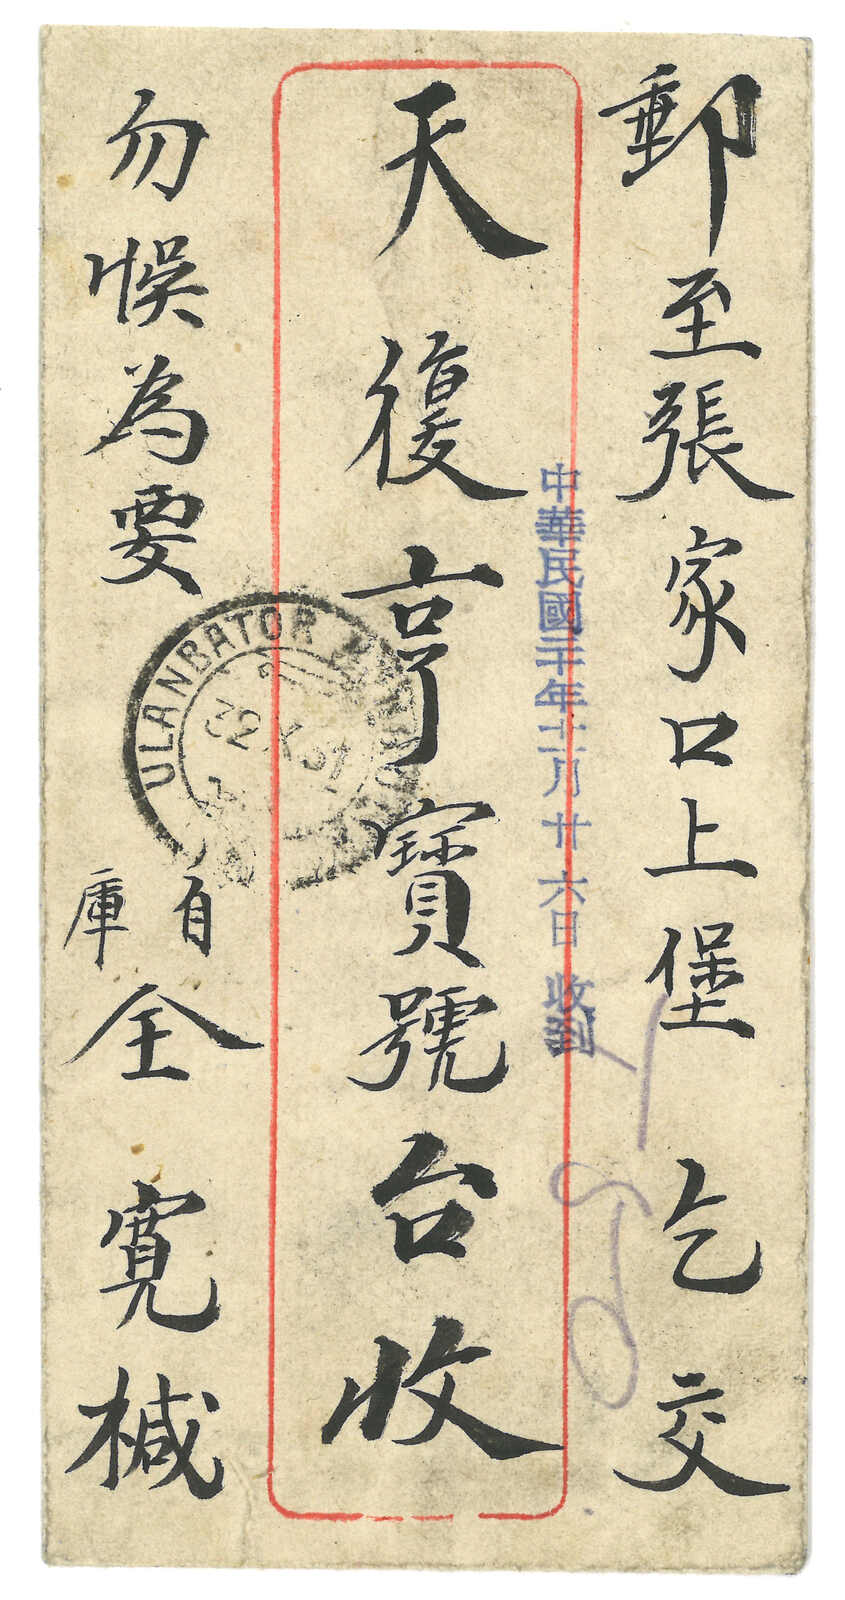 郵至張家口上堡 乞交
天復亨寶號台收
勿悮為要
自庫 全寬椷
中華民國二十年十一月廿六日收到
ULANBATOR